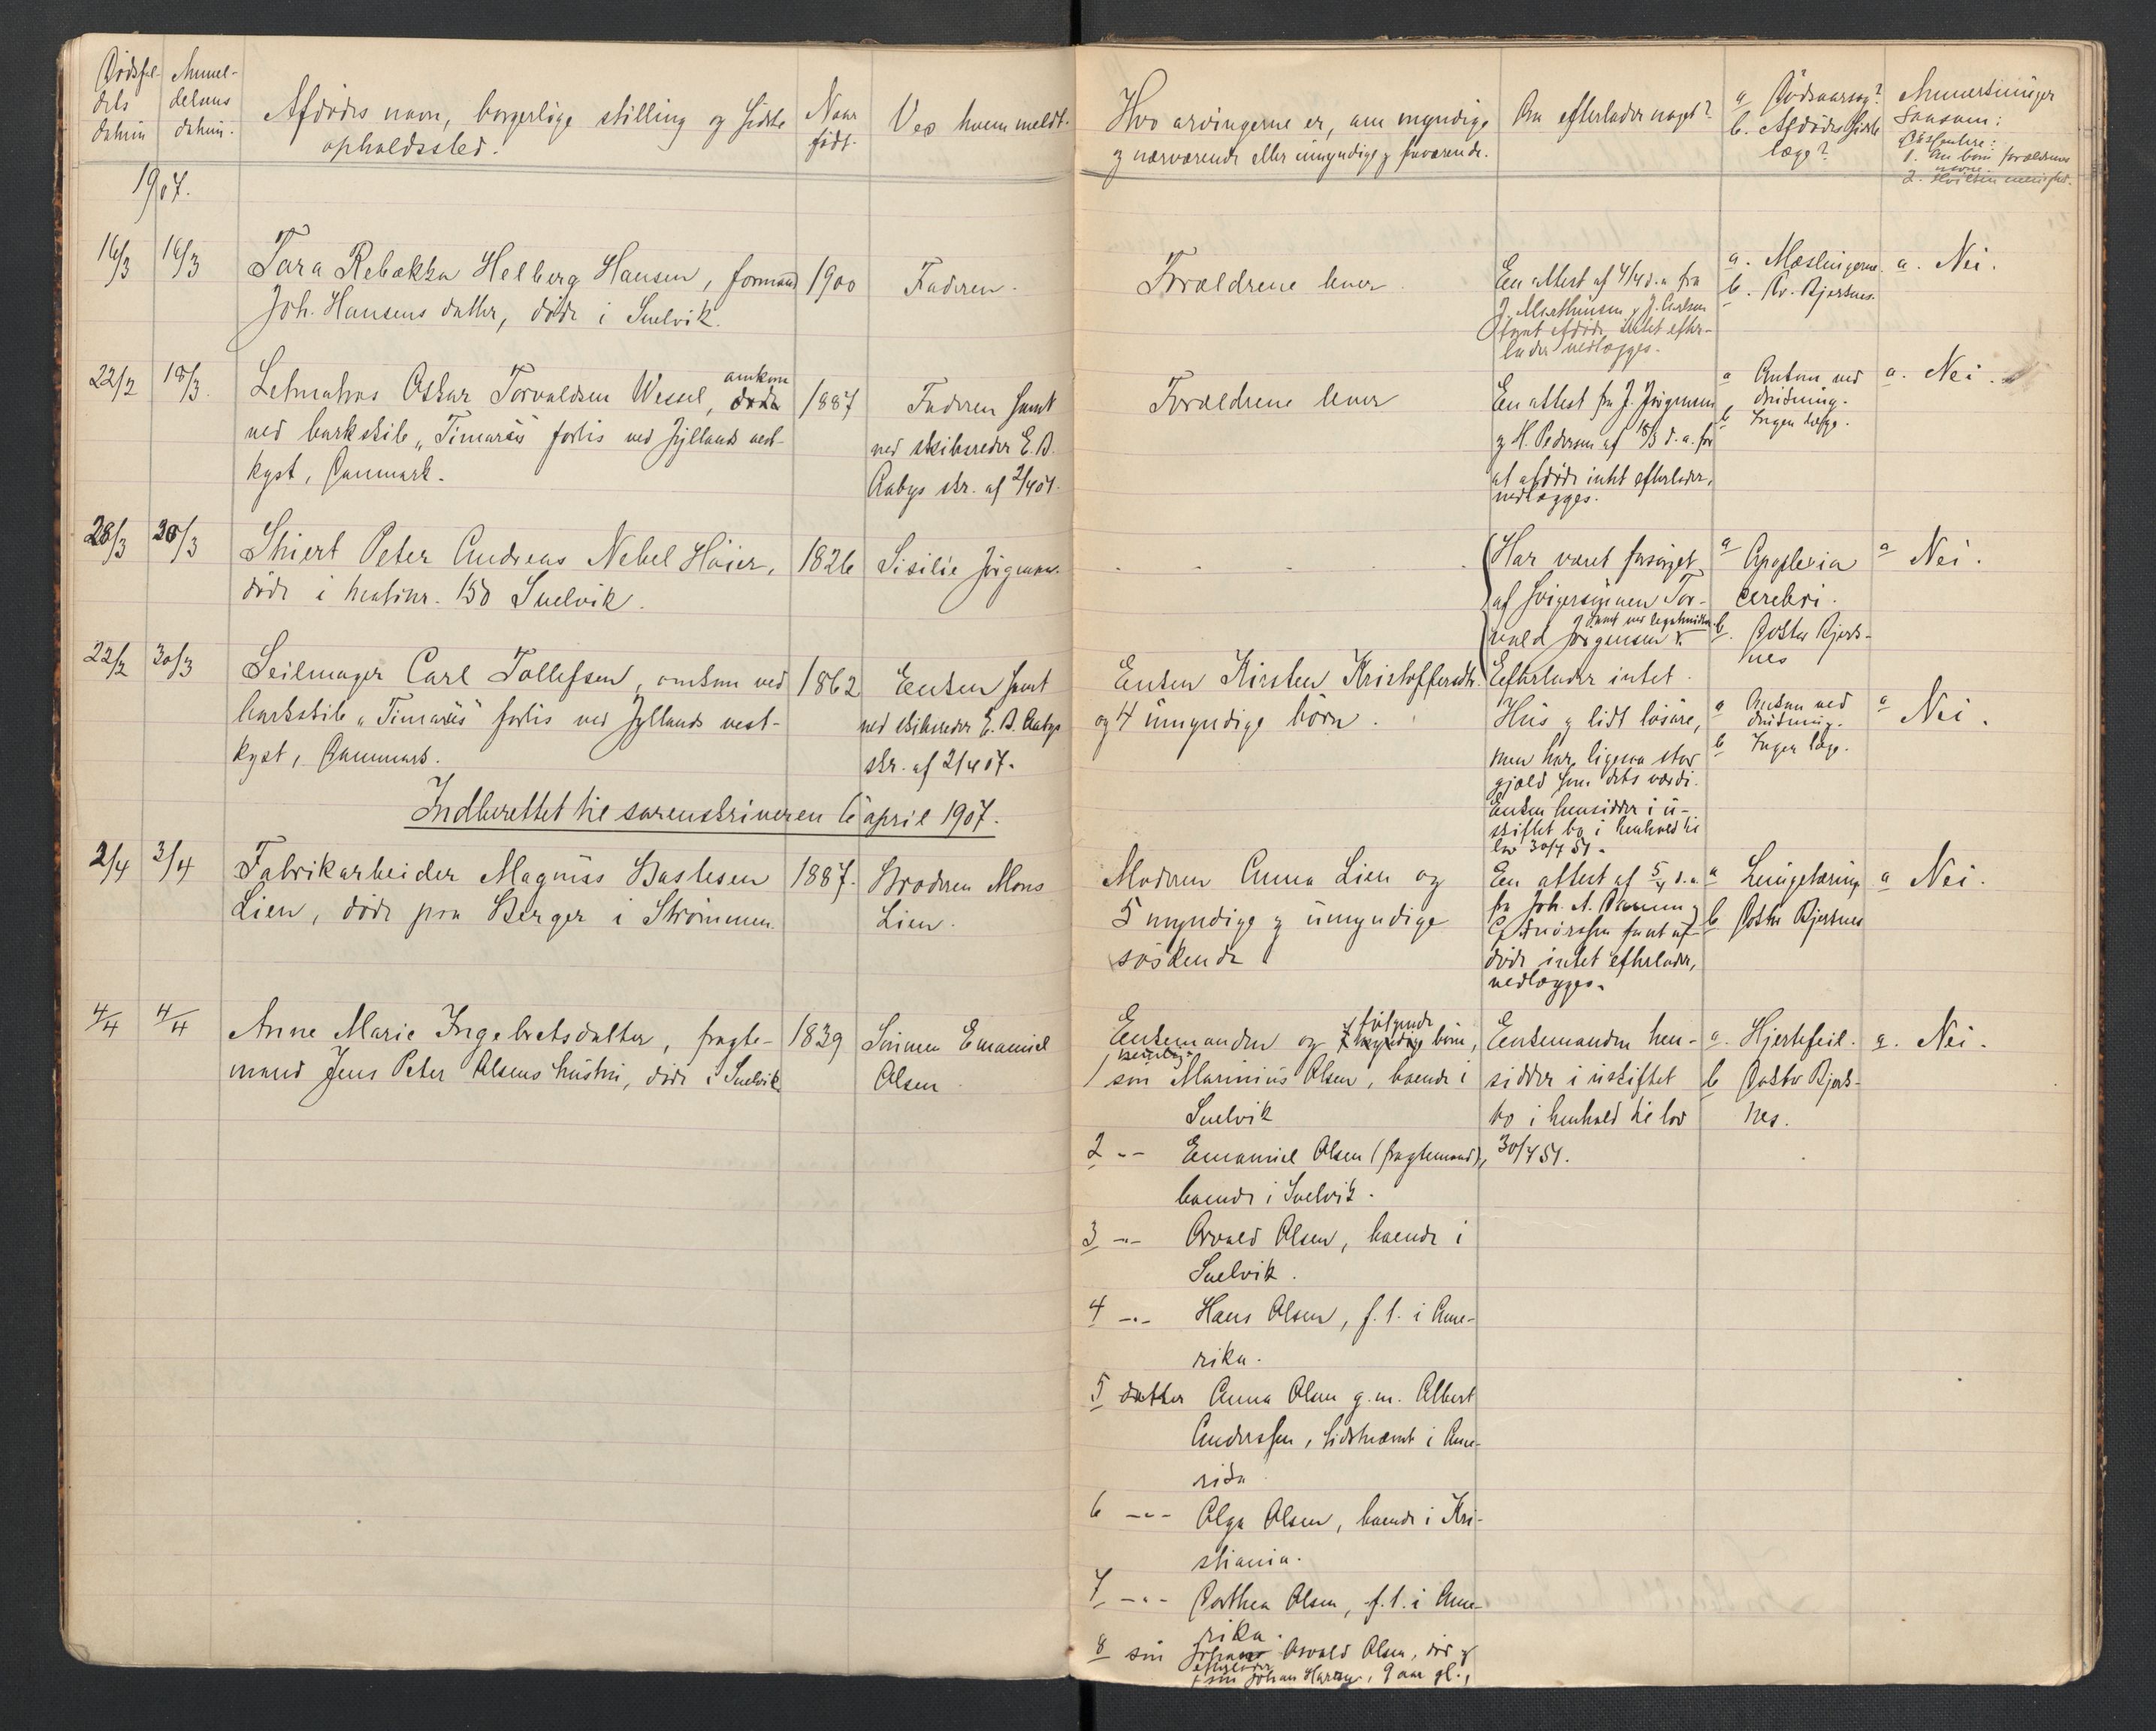 Dødsfal-
dets
datum
Anmel-
delsens
datum.
Afdødes navn, borgerlige stilling og sidste
opholdssted.
Naar
født.
Ved hvem meldt.
Hvo arvingerne er, om myndige
og nærværende eller umyndige og fraværende.
Om efterlader noget?
a Dødsaarsag?
b. Afdødes sidste
læge?
Anmerkninger
saasom:
Dissentere:
1. Om børn forældrenes
navne.
2. Hvilken menighed.
1907.
16/3
16/3
Tora Rebekka Helberg Hansen, formand
Joh. Hansens datter, døde i Svelvik.
1900
Faderen.
Forældrene lever
En attest af 4/4 d.a. fra
J. Marthinsen & J. Carlsen
samt afdøde intet efter-
lader nedlægges.
a. Mæslingerne.
b. Dr. Bjerknes.
a. Nei.
22/2
18/3.
Letmatros Oskar Torvaldsen Wessel, omkom døde
ved barkskib "Timaru's" forlis ved Jyllands vest-
kyst, Danmark.
1887
Faderen samt
ved skibsreder E. B.
Aabys skr. af 2/4 07.
Forældrene lever
En attest fra J. Jørgensen
og H. Pedersen af 18/3 d.a. for
at afdøde intet efterlader,
nedlægges.
a Omkom ved
drukning.
b Ingen læge.
a. Nei.
28/3
30/3
Skiert Peter Andreas Nebel Høier,
døde i matr.nr. 150 Svelvik.
1826
Sisilie Jørgensen.
Har været forsørget
af svigersønnen Tor-
vald Jørgensen samt ved legatmidler.
Efterlader intet.
a Apoplexia
cerebri.
b. Doktor Bjerk-
nes
a Nei.
22/2
30/3
Seilmager Carl Tollefsen, omkom ved
barkskib "Timaru's" forlis ved Jyllands vest-
kyst, Danmark.
1862
Enken samt
ved skibsreder E. B. Aabys
skr. af 2/4 07.
Enken Kirsten Kristoffersdtr.
og 4 umyndige børn.
Hus og lidt løsøre,
men har ligesaa stor
gjæld som dets værdi.
Enken hensidder i u-
skiftet bo i henhold til
lov 30/7 51.
a Omkom ved
drukning.
b Ingen læge.
a Nei.
Indberettet til sorenskriveren 6 april 1907.
2/4
3/4
Fabrikarbeider Magnus Haslesen
Lien, døde paa Berger i Strømmen.
1887.
Broderen Mons
Lien.
Moderen Anna Lien og
5 myndige og umyndige
søskende
En attest af 5/4 d.a.
fra Joh. A.
samt af-
døde intet efterlader,
nedlægges.
a Lungetæring
b Doktor Bjerknes
a Nei.
4/4
4/4
Anne Marie Ingebretsdatter, fragte-
mand Jens Peter Olsens hustru, døde i Svelvik
1839
Sønnen Emanuel
Olsen
Enkemanden og følgende myndige børn,
nemlig:
1 søn Marinius Olsen, boende i
Svelvik
2 -"- Emanuel Olsen (fragtemand),
boende i Svelvik.
3 -"- Arvald Olsen, boende i
Svelvik.
4 -"- Hans Olsen, f. t. i Ame-
rika.
5 datter Anna Olsen g. m. Albert
Anderssen, sidstnævnte i Ame-
rika
6 -"- Olga Olsen, boende i Kri-
stiania.
7 -"- Dorthea Olsen, f. t. i Ame-
rika.
8 søn Johan Osvald Olsen, død og
efterlader
1 søn Johan Harry, 9 aar gl.,
Enkemanden hen-
sidder i uskiftet
bo i henhold til lov
30/7 51.
a. Hjertefeil.
b Doktor Bjerk-
nes.
a. Nei.